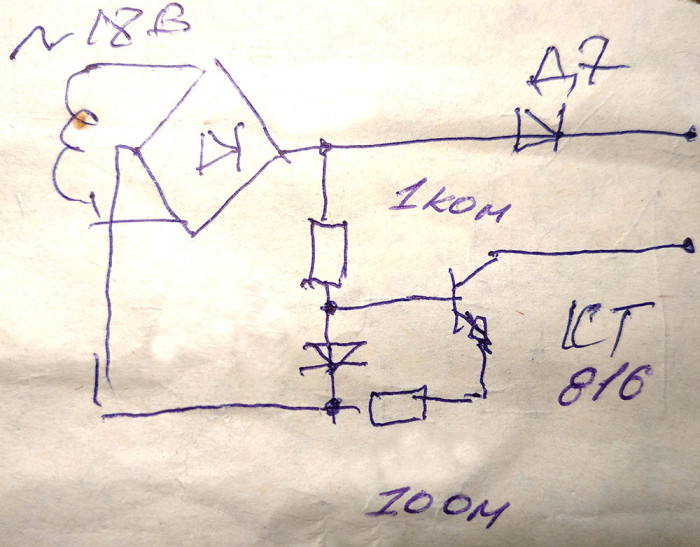 ~18В
Д7
1ком
КТ
816
10Ом